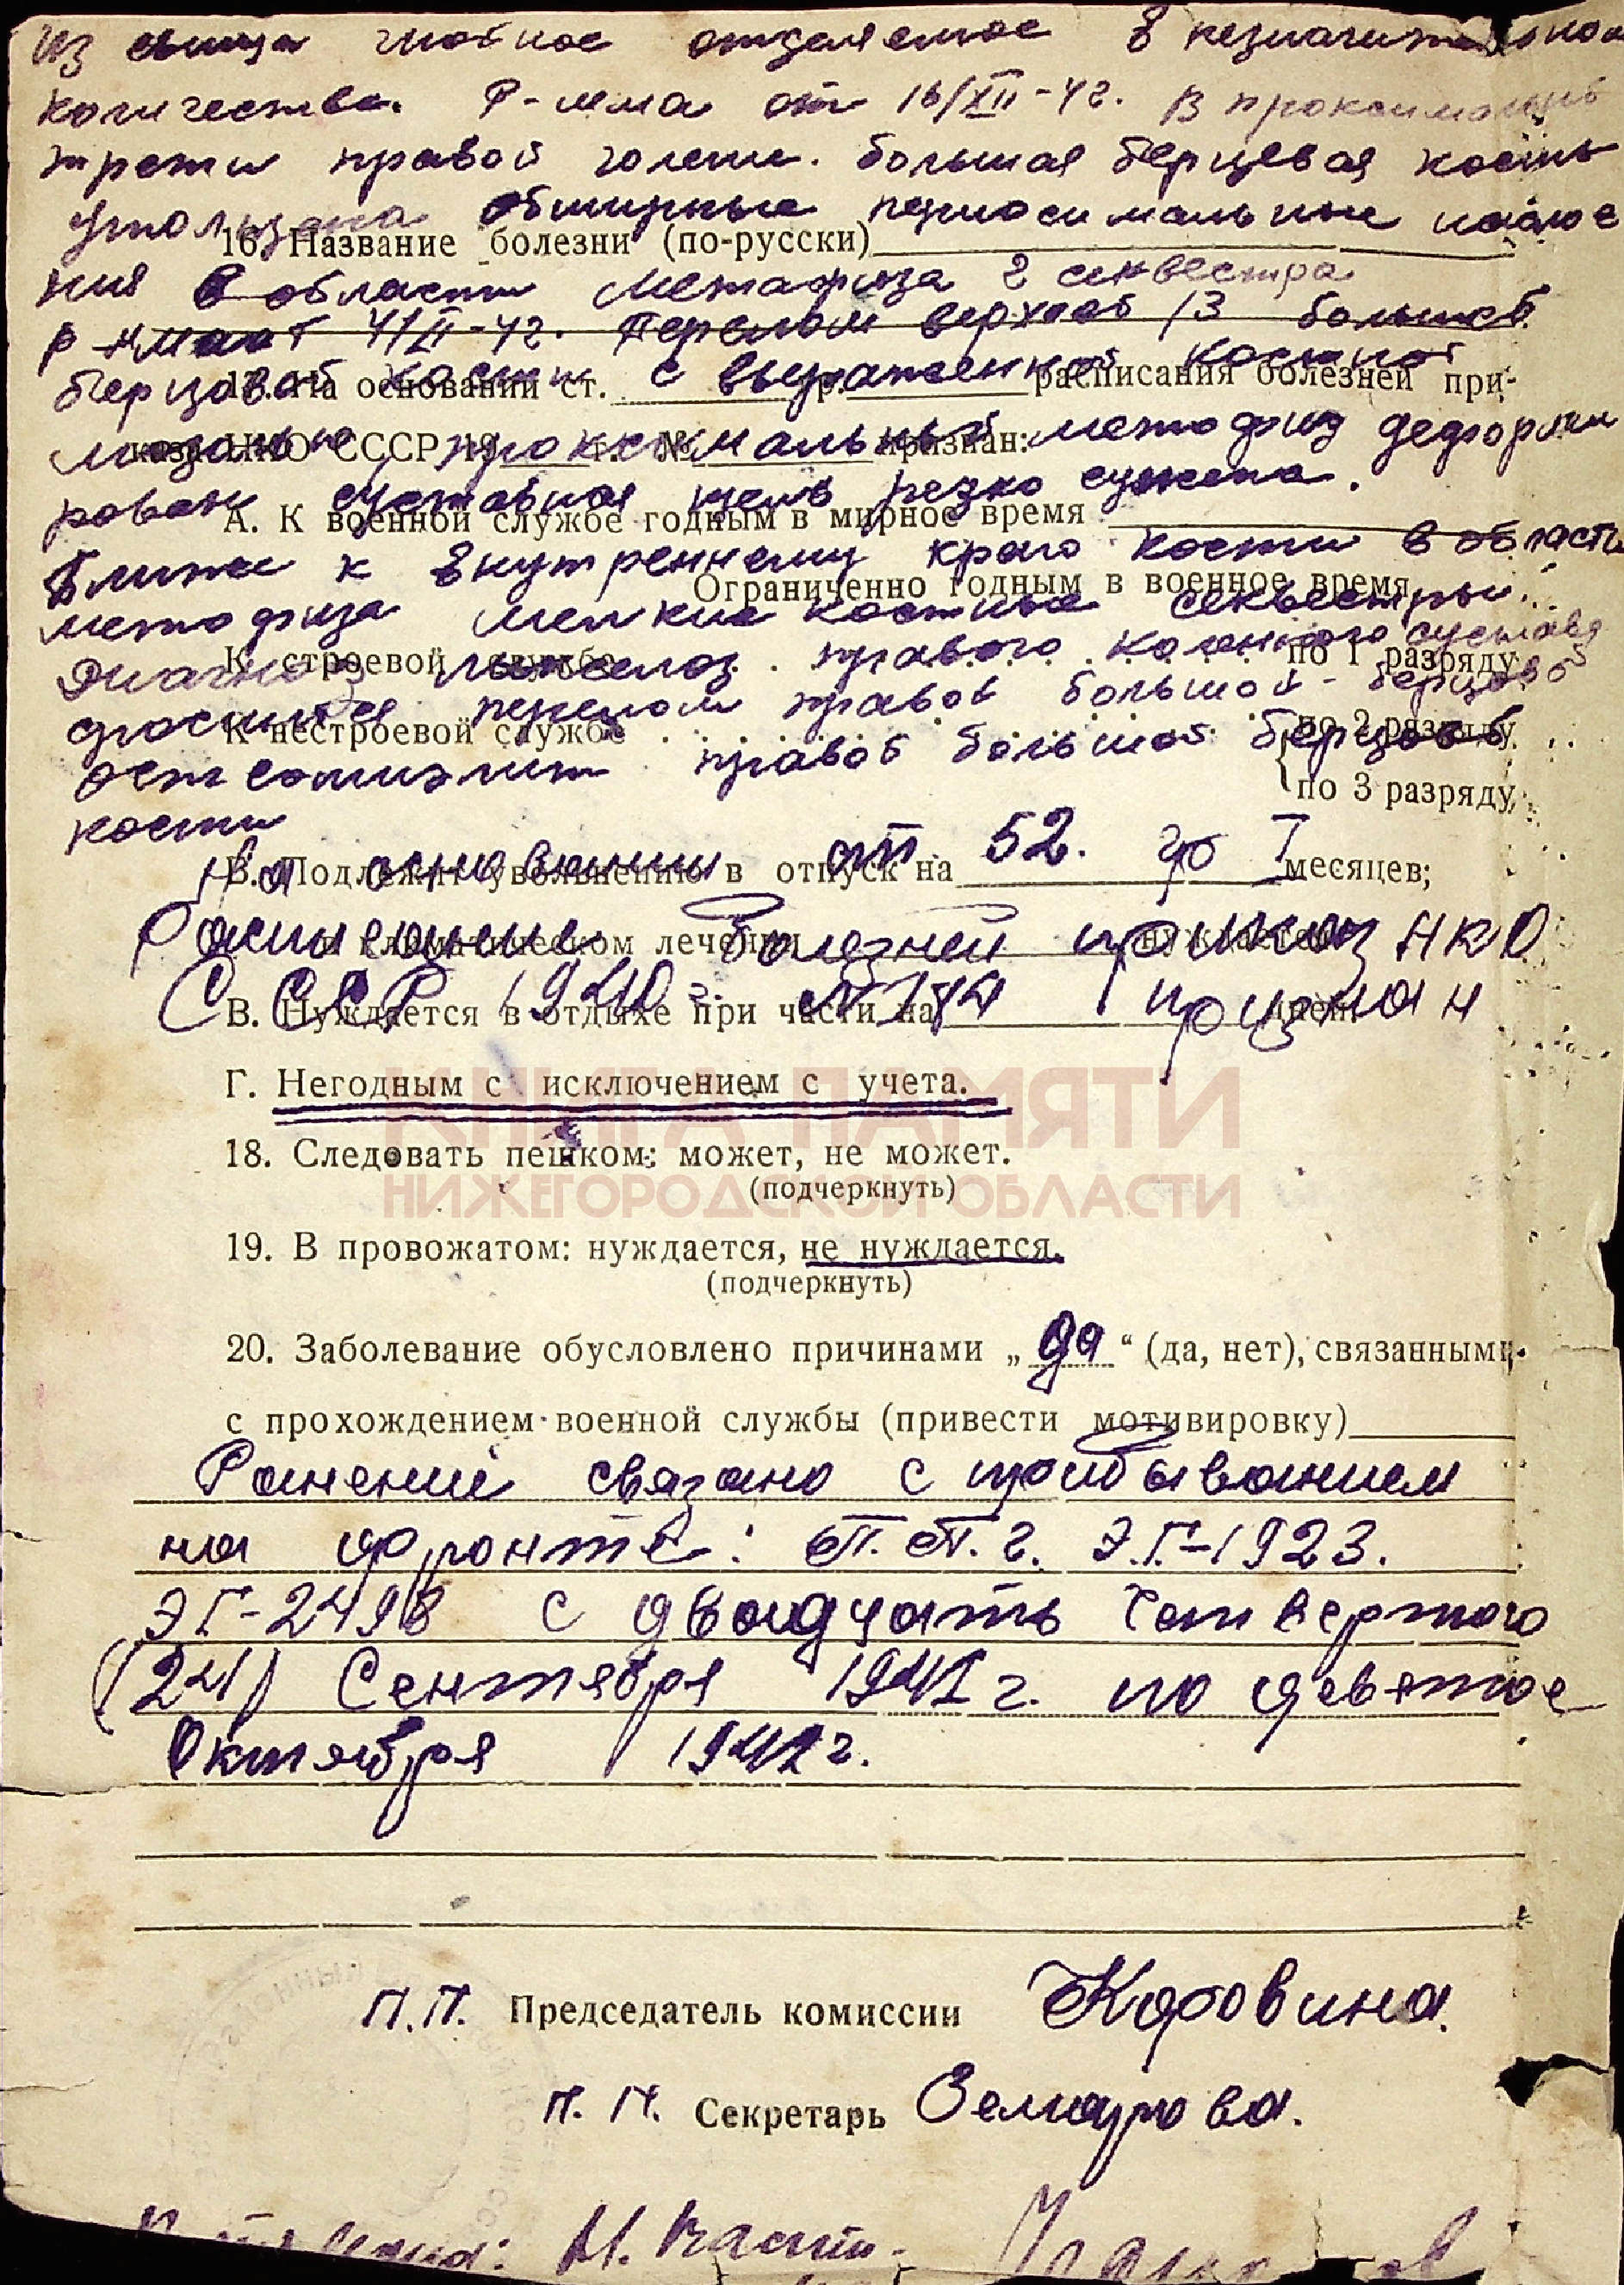 Из свища гнойное отделяемое в незначительном
количестве. Р-мма от 16/XII-42. В проксимальн
трети правой голени. большая берцовая кость
утолщена обширные периостальные наслое
16. Название болезни (по-русски)
ния в области метафиза 2 секвестра
4/II-42. Перелом верхней /3 большой
берцовой кости с выраженной костной
17. На основании ст. гр. расписания болезней при-
каза НКО СССР 19 г. № признан:
мозолью, проксимальный метафиз деформи
рован суставная щель резко сужена.
А. К военной службе годным в мирное время
Ближе к внутреннему краю кости в области
Ограниченно годным в военное время
метафиза мелкие костные секвестры.
Диагноз правого коленного сустава
К строевой службе по 1 разряду
перелом правой большой-берцовой
К нестроевой службе по 2 разряду
остеомиэлит правой большой берцовой
по 3 разряду,
кости
На основании ст. 52. гр I
Б. Подлежит увольнению в отпуск на месяцев;
Расписание болезней приказ НКО
в климатическом лечении нуждается
СССР 1940 г. № 184 признан
В. Нуждается в отдыхе при части на дней.
Г. Негодным с исключением с учета.
КНИГА ПАМЯТИ
18. Следовать пешком: может, не может.
(подчеркнуть)
НИЖЕГОРОДСКОЙ ОБЛАСТИ
19. В провожатом: нуждается, не нуждается.
(подчеркнуть)
20. Заболевание обусловлено причинами „да“ (да, нет), связанными
с прохождением военной службы (привести мотивировку)
Ранение связано с прибыванием
на фронте: П.П.г. Э.Г-1923.
ЭГ-2498 с двадцать четвертого
(24) Сентября 1941 г. по девятое
Октября 1942 г.
П.П. Председатель комиссии Коровина.
П.П. Секретарь